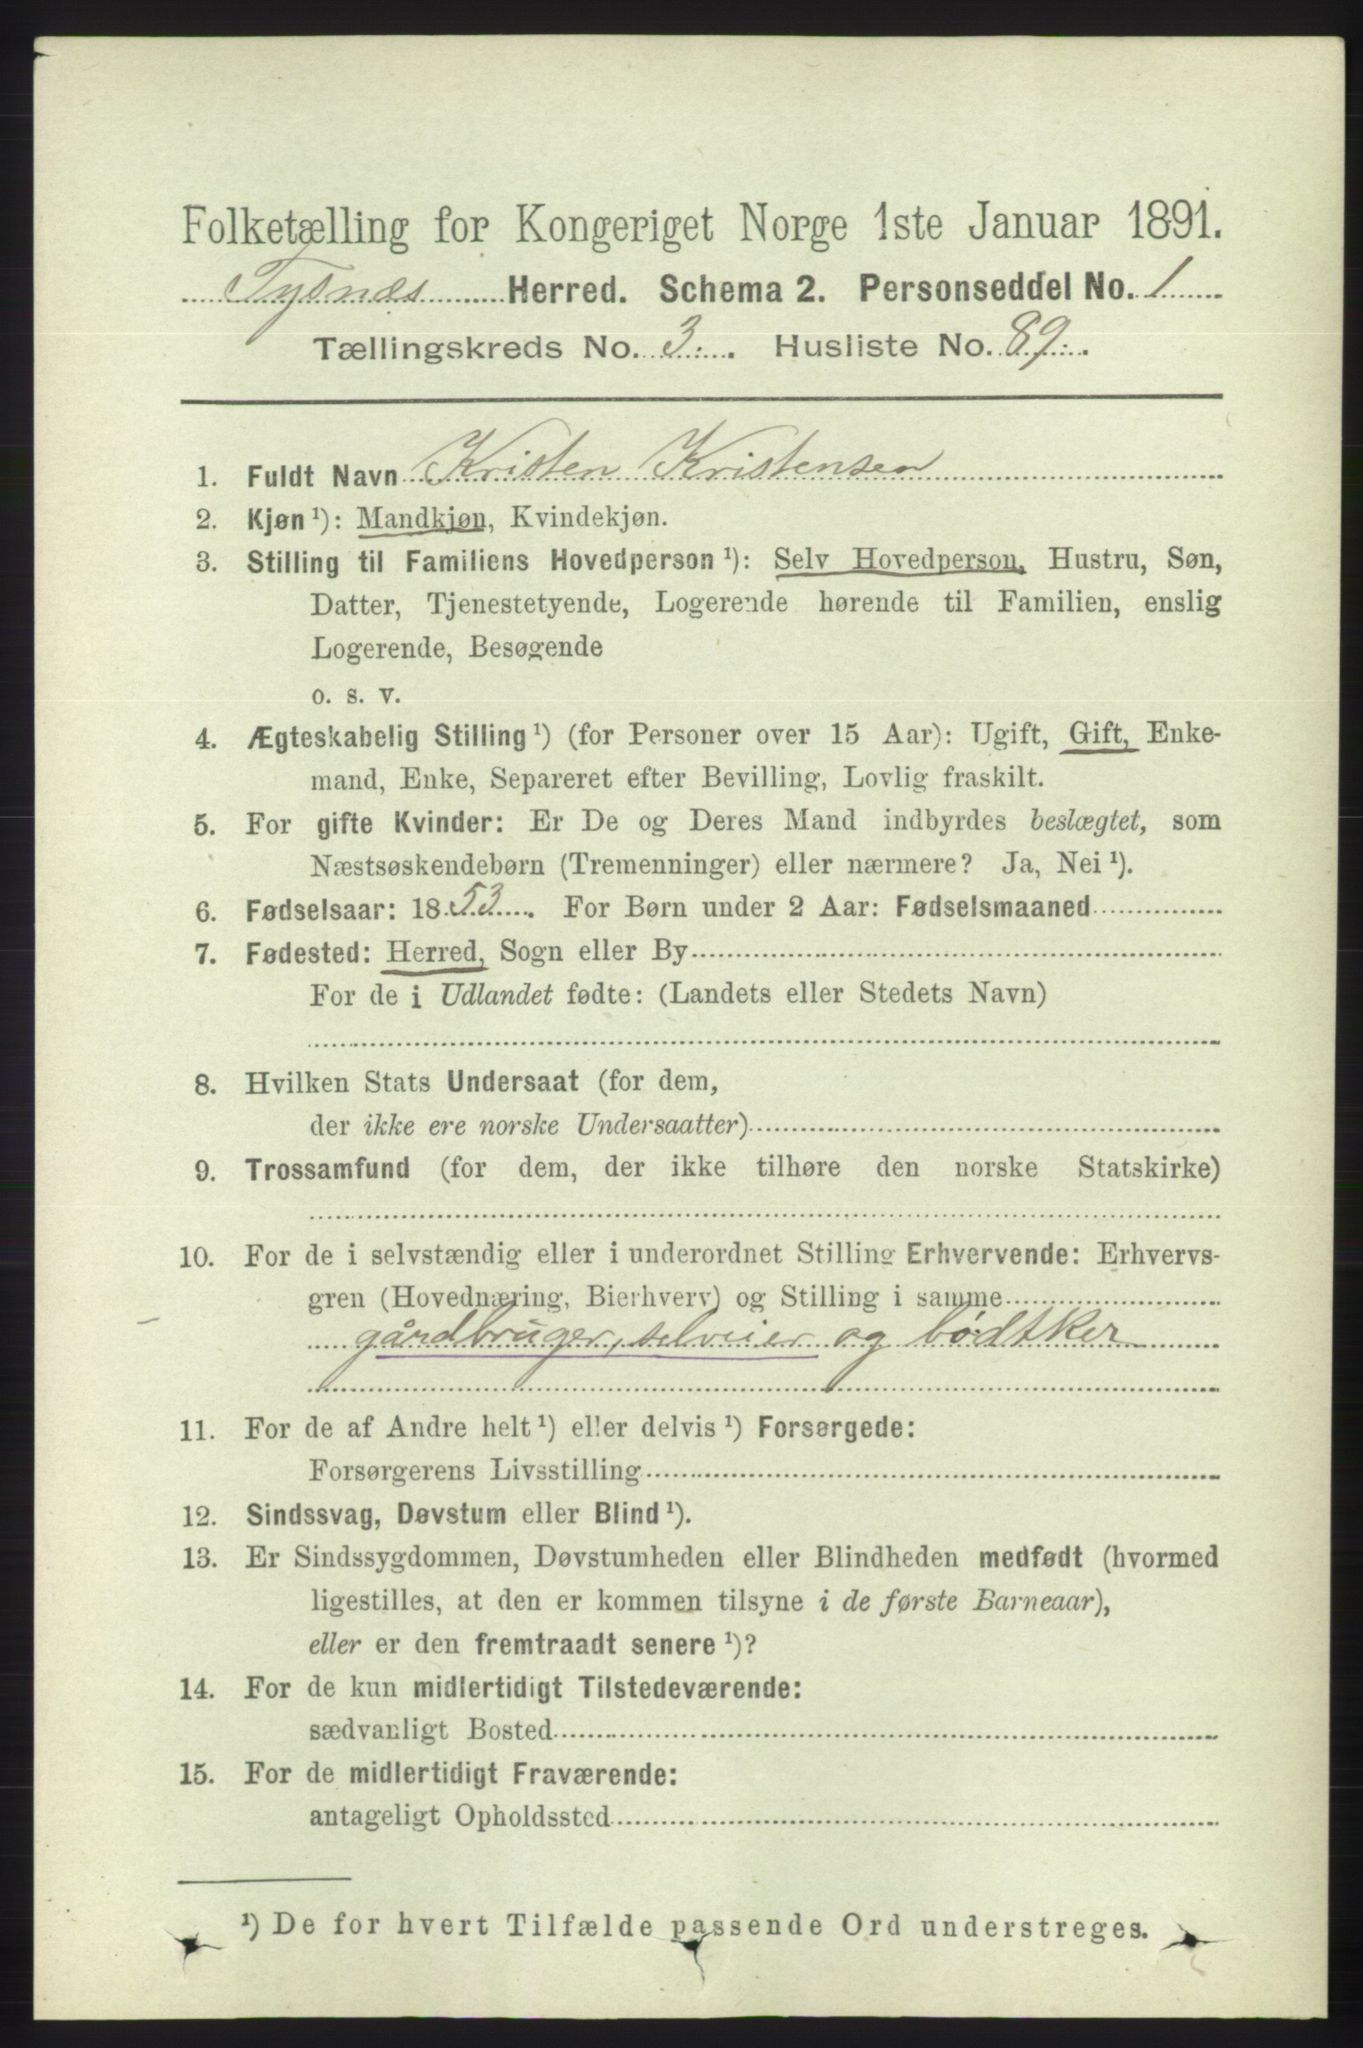 Folketælling for Kongeriget Norge 1ste Januar 1891.
Tysnæs Herred. Schema 2. Personseddel No. 1
Tællingskreds No. 3. Husliste No. 89.
1. Fuldt Navn Kristen Kristensen
2. Kjøn ¹): Mandkjøn, Kvindekjøn.
3. Stilling til Familiens Hovedperson ¹): Selv Hovedperson, Hustru, Søn,
Datter, Tjenestetyende, Logerende hørende til Familien, enslig
Logerende, Besøgende
o. s. v.
4. Ægteskabelig Stilling ¹) (for Personer over 15 Aar): Ugift, Gift, Enke-
mand, Enke, Separeret efter Bevilling, Lovlig fraskilt.
5. For gifte Kvinder: Er De og Deres Mand indbyrdes beslægtet, som
Næstsøskendebørn (Tremenninger) eller nærmere? Ja, Nei ¹).
6. Fødselsaar: 1853. For Børn under 2 Aar: Fødselsmaaned
7. Fødested: Herred, Sogn eller By
For de i Udlandet fødte: (Landets eller Stedets Navn)
8. Hvilken Stats Undersaat (for dem,
der ikke ere norske Undersaatter)
9. Trossamfund (for dem, der ikke tilhøre den norske Statskirke)
10. For de i selvstændig eller i underordnet Stilling Erhvervende: Erhvervs-
gren (Hovednæring, Bierhverv) og Stilling i samme
gårdbruger, selveier og bødtker
11. For de af Andre helt ¹) eller delvis ¹) Forsørgede:
Forsørgerens Livsstilling
12. Sindssvag, Døvstum eller Blind ¹).
13. Er Sindssygdommen, Døvstumheden eller Blindheden medfødt (hvormed
ligestilles, at den er kommen tilsyne i de første Barneaar),
eller er den fremtraadt senere ¹)?
14. For de kun midlertidigt Tilstedeværende:
sædvanligt Bosted
15. For de midlertidigt Fraværende:
antageligt Opholdssted
¹) De for hvert Tilfælde passende Ord understreges.